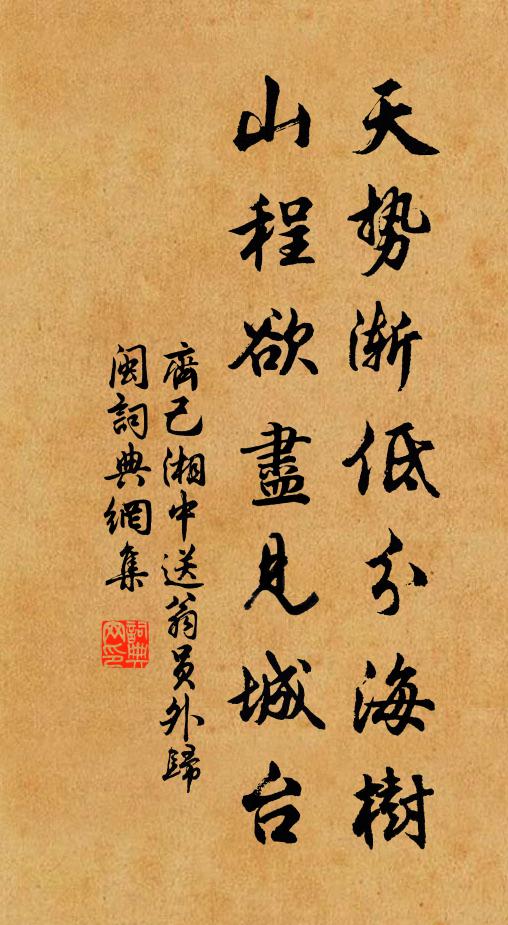 天勢漸低分海樹
山程欲盡見城台
齊己湘中送翁員外歸
閩詞典網集
詞典网印